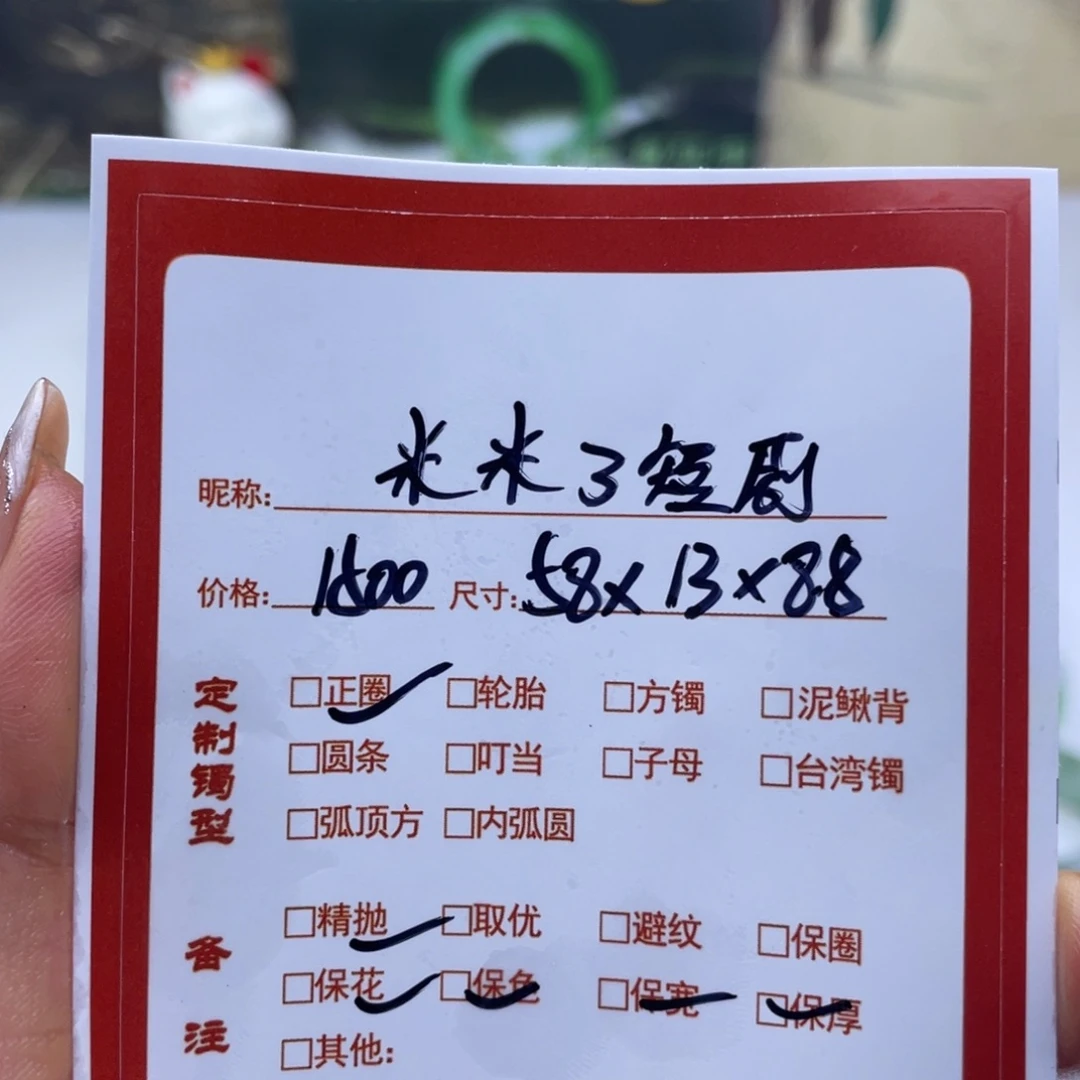 昵称: 米米了短剧
价格: 1600 尺寸: 58×13×8.8
定制镯型
□正圈 □轮胎 □方镯 □泥鳅背
□圆条 □叮当 □子母 □台湾镯
□弧顶方 □内弧圆
备注
□精抛 □取优 □避纹 □保圈
□保花 □保色 □保宽 □保厚
□其他: